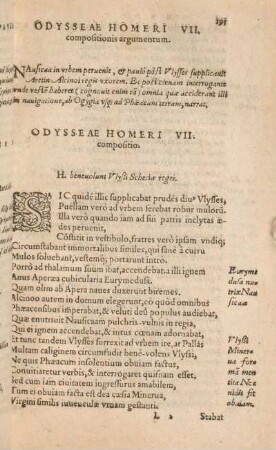 191
ODYSSEAE HOMERI VII.
compositionis argumentum.
NAusicaa in vrbem peruenit, & paulò pòst Vlysses supplicauit
Aretæ Alcinoi regis vxorem. Ec post cœnam interroganti
vnde vestē haberet ( cognouit enim eā) omnia quæ acciderant illi
in nauigatione, ab Ogygia vsq; ad Phæacum terram, narrat.
ODYSSEAE HOMERI VII.
compositio.
H. beneuolum Vlyssi Scheriæ reges.
SIC quidē illic supplicabat prudēs diuus Vlysses,
Puellam verò ad vrbem ferebat robur mulorū.
Illa verò quando iam ad sui patris inclytas ædes peruenit,
Cōstitit in vestibulo, fratres verò ipsam vndiq;
Circumstabant immortalibus similes, qui sanè à curru
Mulos soluebant, vestemq; portarunt intrò.
Porrò ad thalamum suum ibat, accendebat. a illi ignem
Anus Aperæa cubicularia Eurymedusa.
Quam olim ab Apera naues duxerunt biremes.
Alcinoo autem in domum elegerunt, eo quòd omnibus
Phæacensibus imperabat, & veluti deū populus audiebat,
Quæ enutriuit Nausicaam pulchris-vulnis in regia,
Qui ei ignem accendebat, & intus cœnam adornabat,
Et tunc tandem Vlysses surrexit ad vrbem ire, at Pallàs
Multam caliginem circumfudit benè-volens Vlyssi,
Ne quis Phæacum insolentium obuiam factus,
Conuitiaretur verbis, & interrogaret quisnam esset,
Sed cum iam ciuitatem ingressurus amabilem,
Tum ei obuiam facta est dea cæsia Minerua,
Virgini similis iuuenculæ vrnam gestanti.
Eurymedusa
nutrix Nausicaæ
Vlyssi
fit
obuiam.
L 2
Stabat